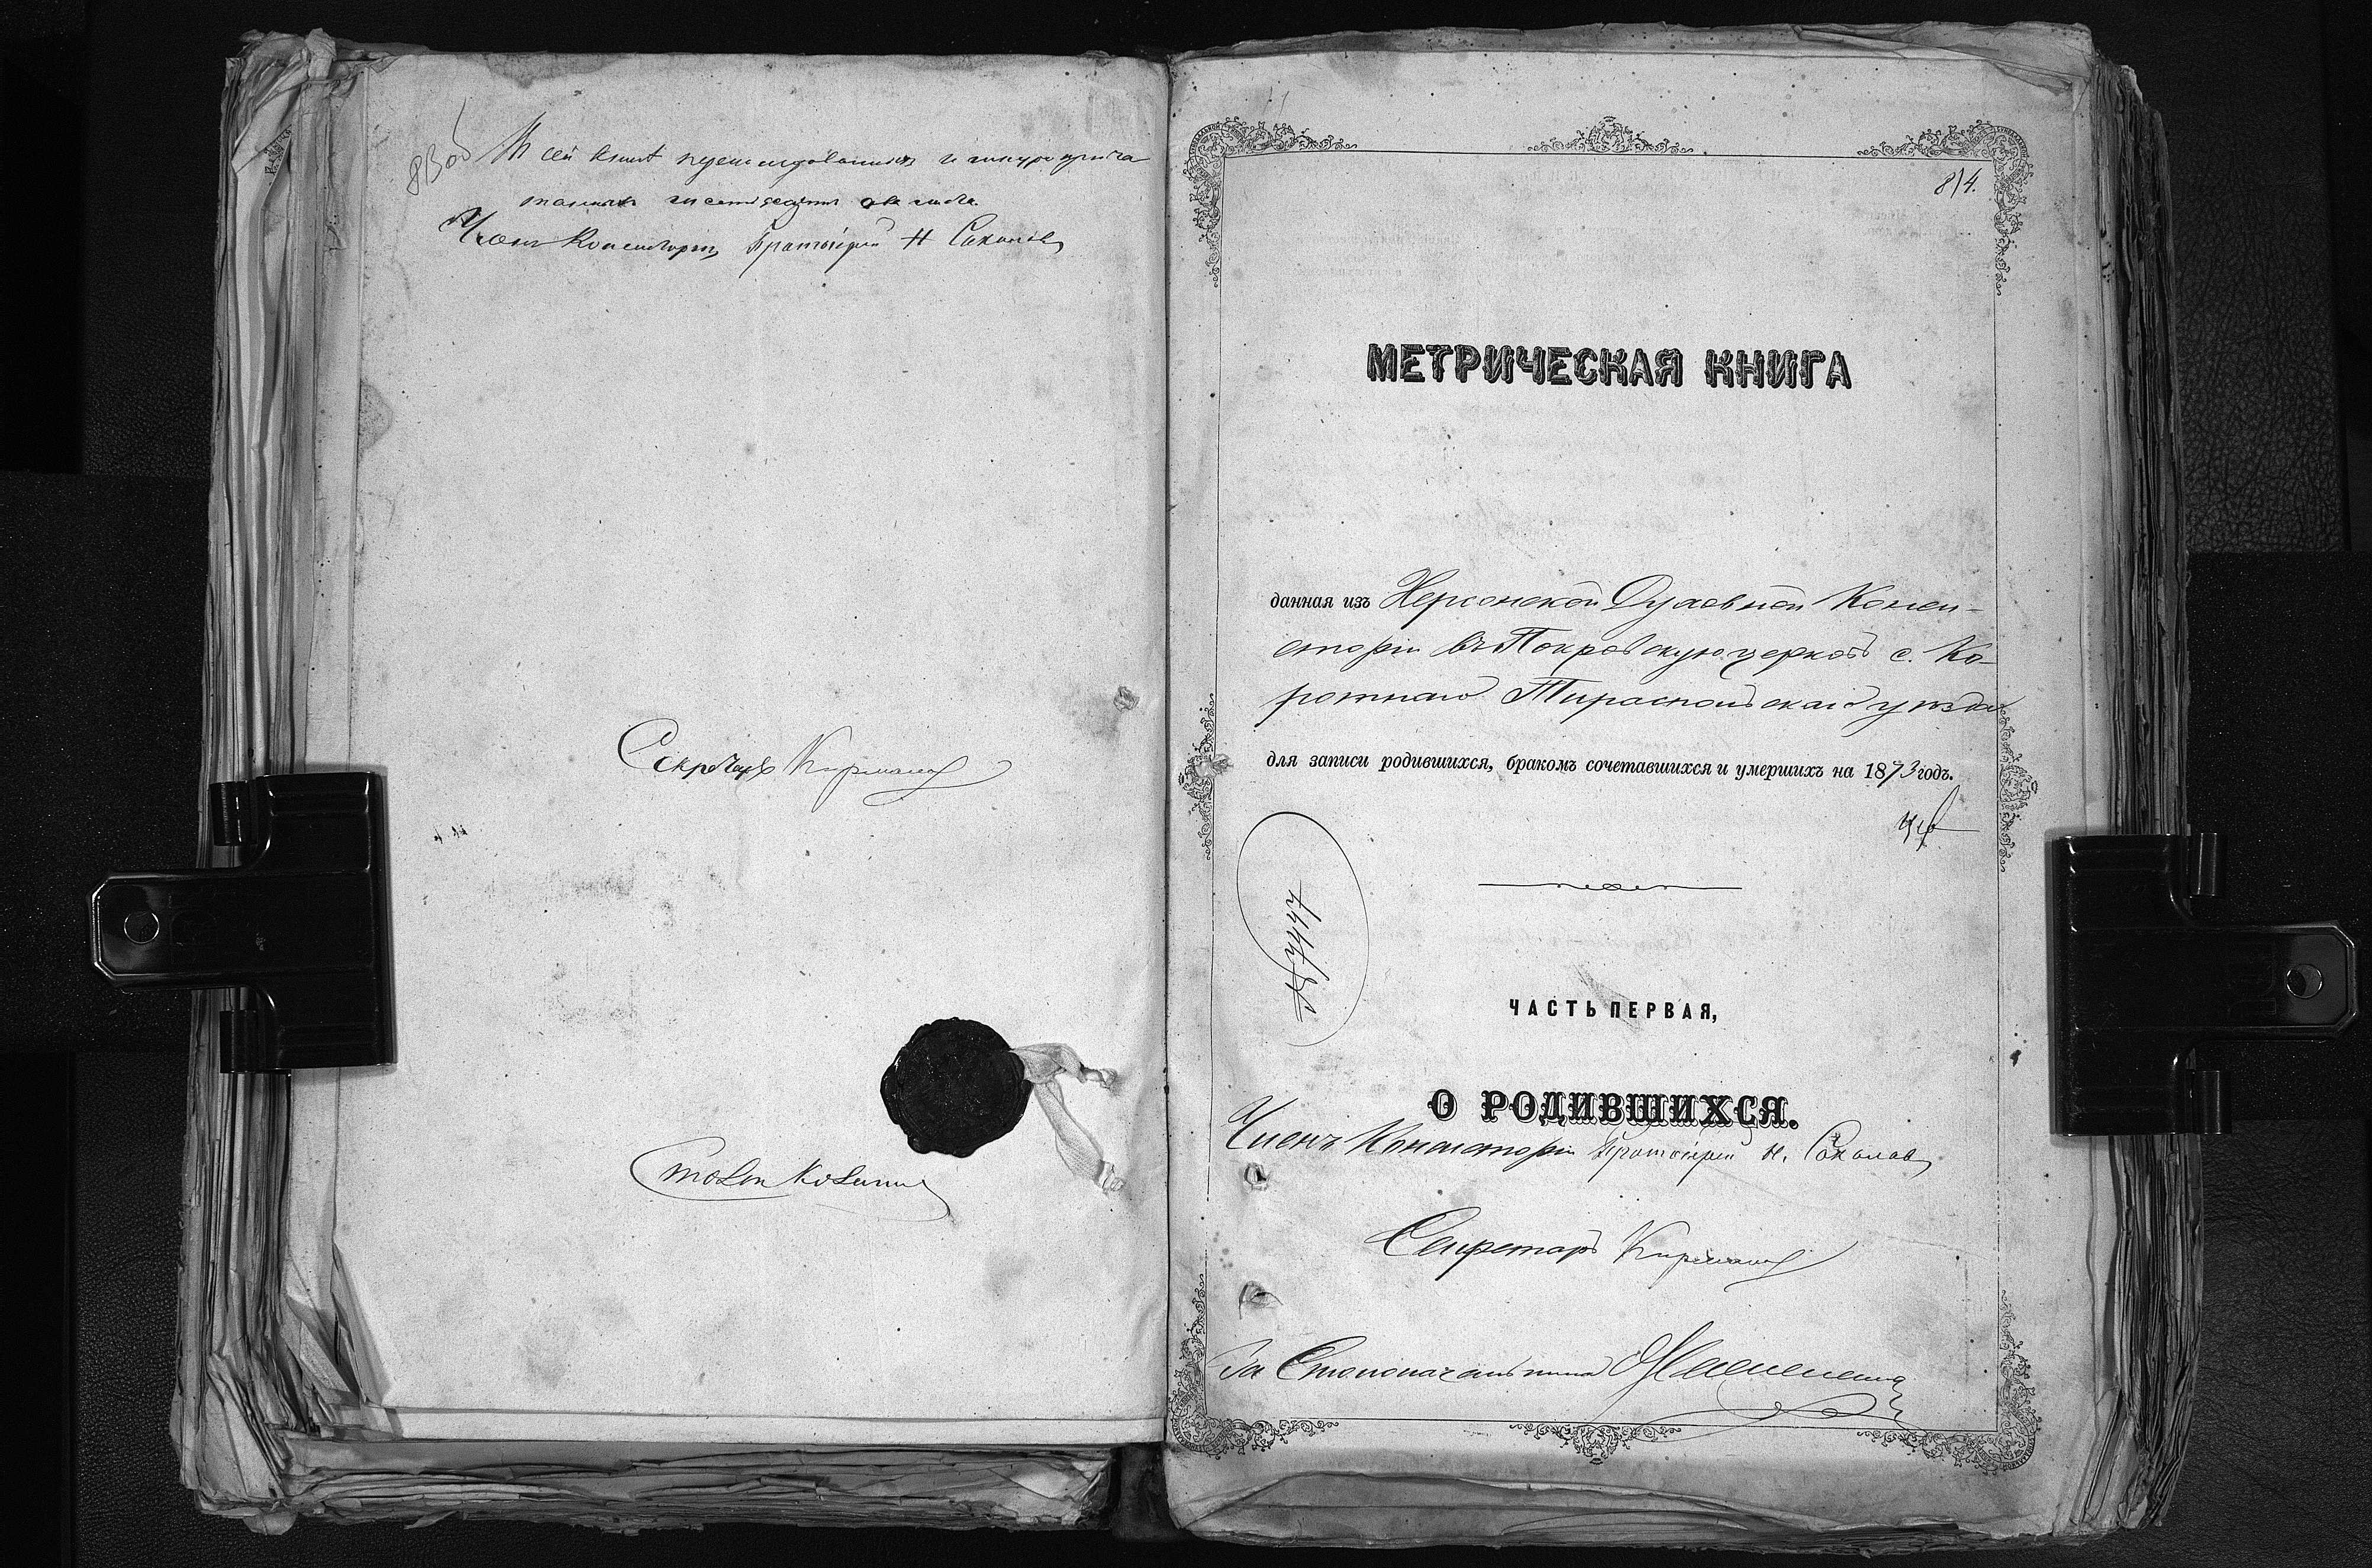 813 об
В сей книгѣ пронумерованныхъ и шнуромъ
листа.
Членъ Консисторіи, Протоіерей Н Соколовъ
Секретарь
8/4.
МЕТРИЧЕСКАЯ КНИГА
данная изъ Херсонской Духовной Конси-
сторіи въ Покровскую церковь с. Ко-
ротнаго Тираспольскаго уѣзда
для записи родившихся, бракомъ сочетавшихся и умершихъ на 1873 годъ.
№ 7447
ЧАСТЬ ПЕРВАЯ,
О РОДИВШИХСЯ.
Членъ Консисторіи Протоіерей Н. Соколовъ
Секретарь
За Столоначальника